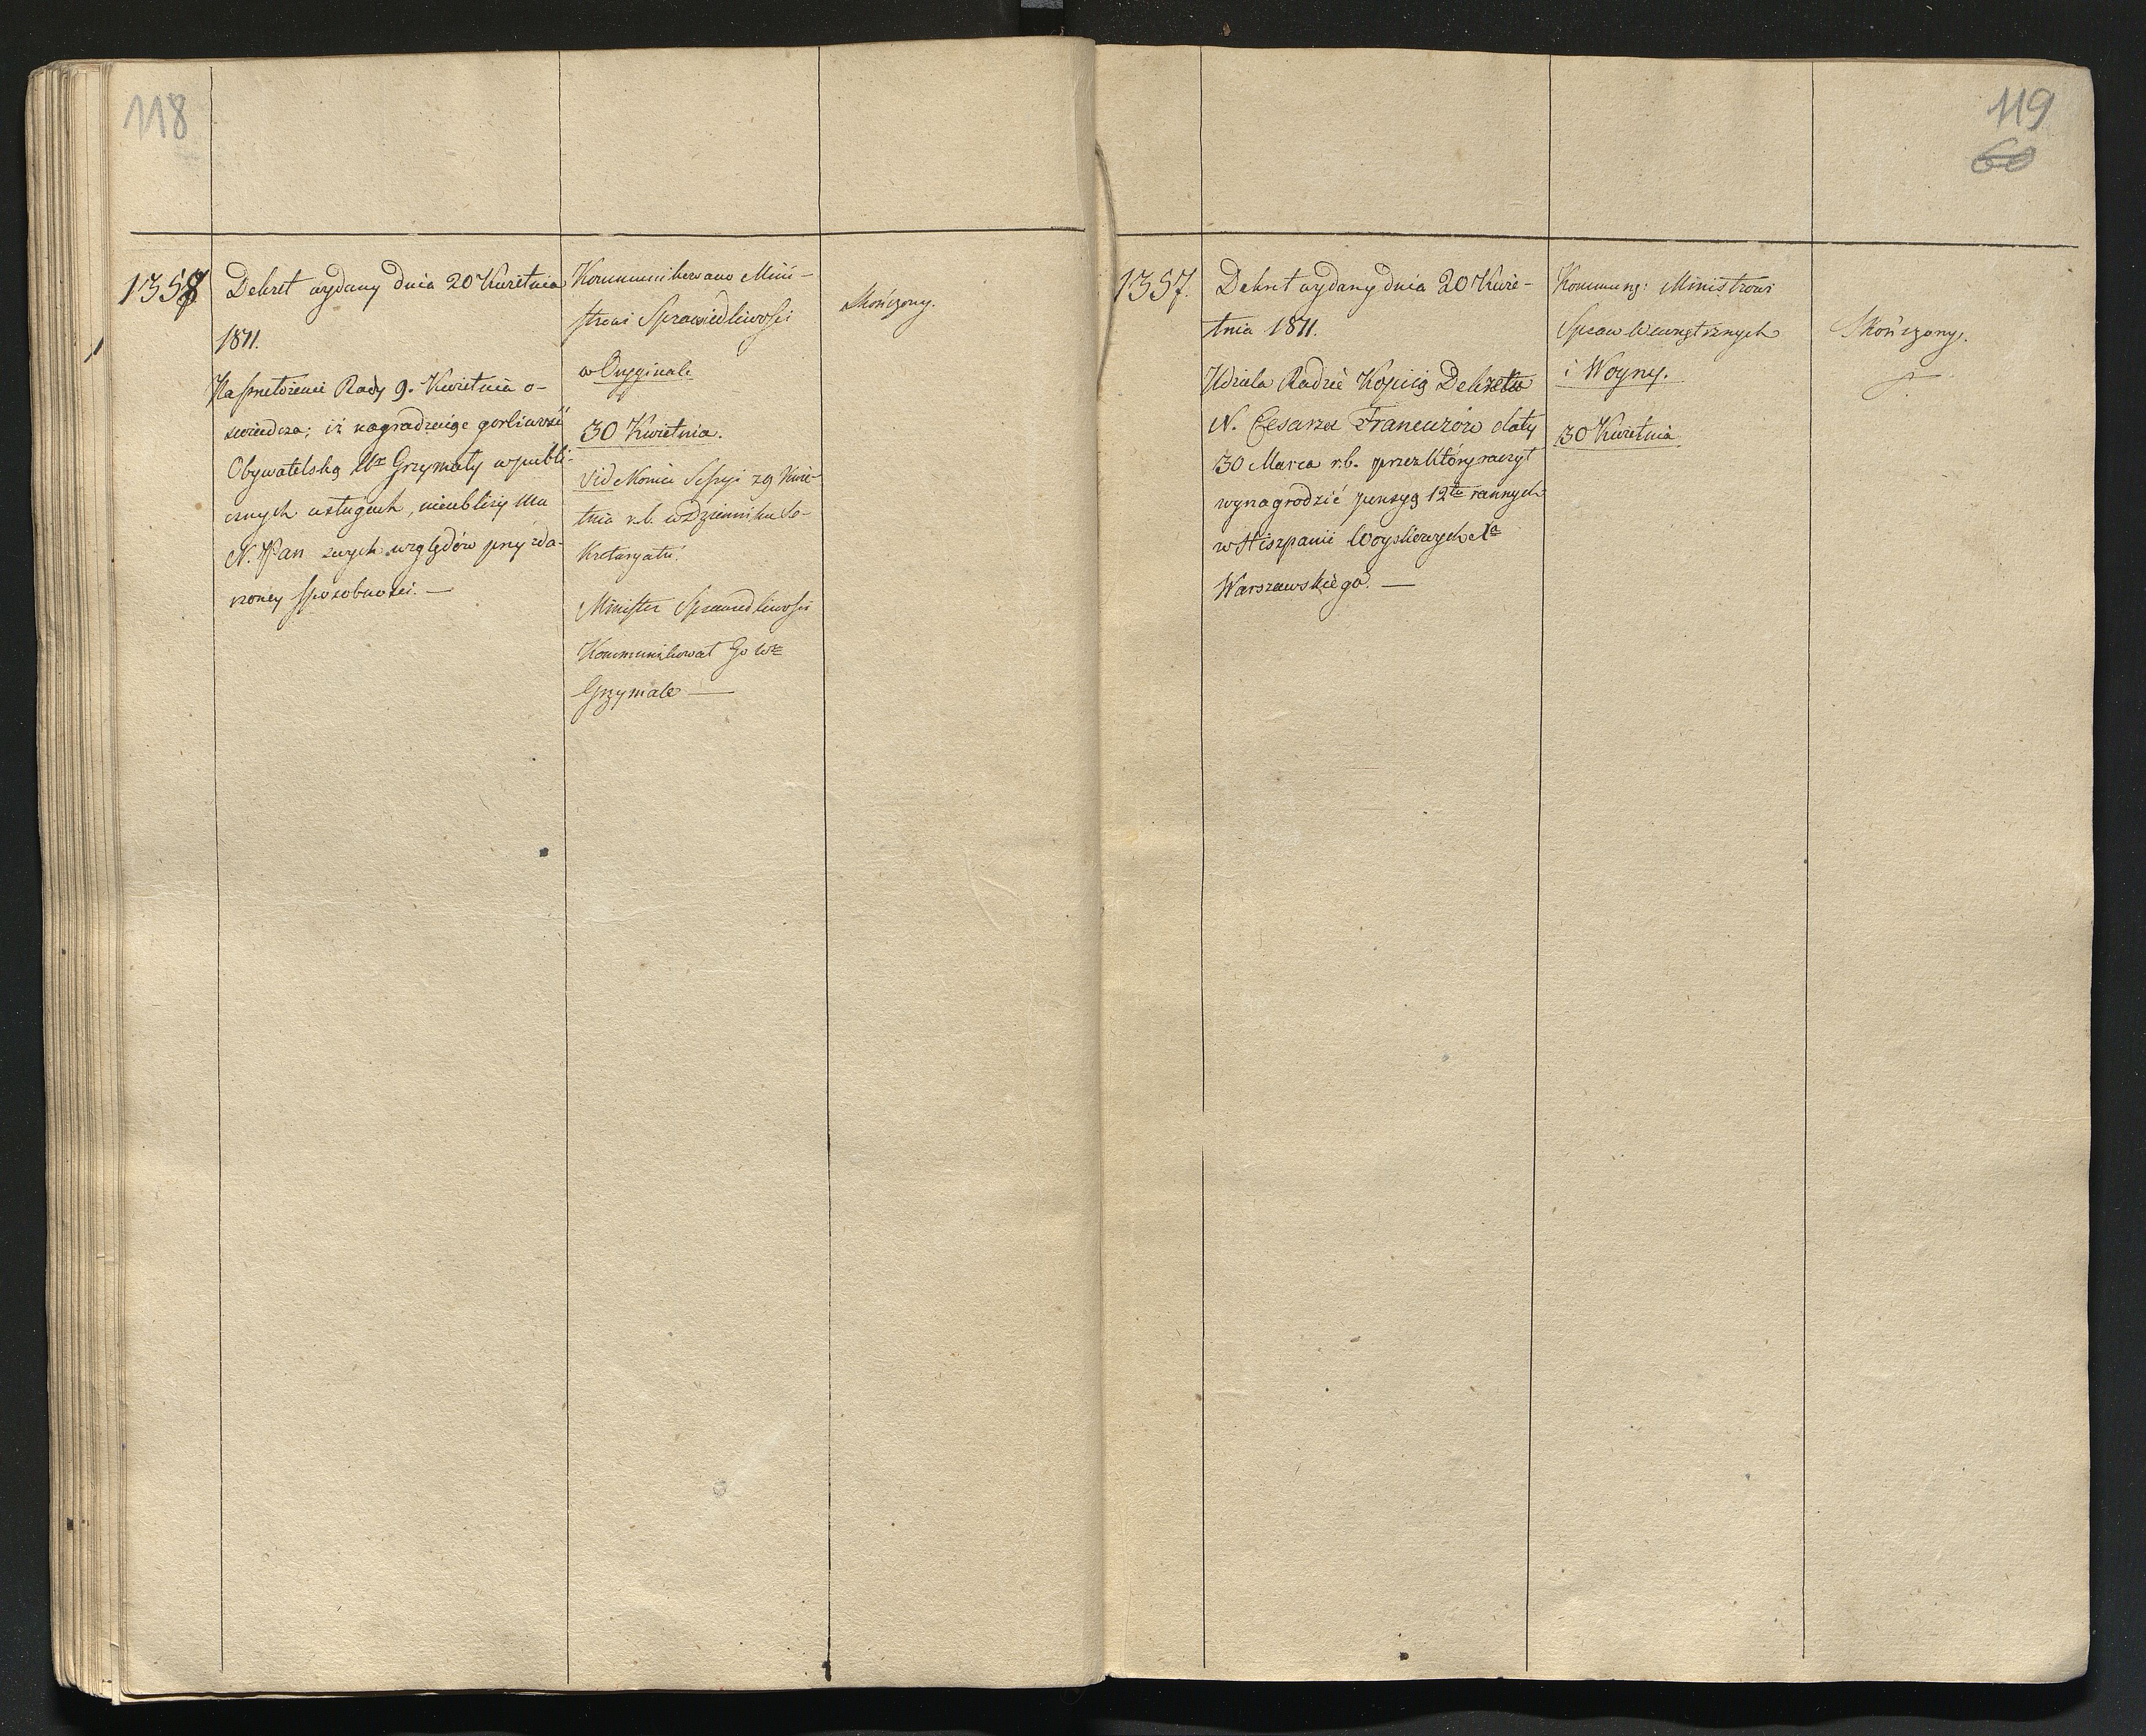 118
1358
Dekret wydany dnia 20 Kwietnia
1811.
Na przełożenie Rady 9. Kwietnia o-
świadcza; iż nagradzaiąc gorliwość
Obywatelską Ur Grzymały w publi-
cznych usługach, nieubliży mu
N. Pan swych względów przy zda-
rzoney sposobności. —
Kommunikowano Mini-
strowi Sprawiedliwości
w Oryginale
30 Kwietnia.
Vid Koniec Sessyi 29 Kwie-
tnia r.b. w Dzienniku Se-
kretaryatu.
Minister Sprawiedliwości
Kommunikował Go Wu
Grzymale —
Skończony.
119
60
1357.
Dekret wydany dnia 20 Kwie-
tnia 1811.
Udziela Radzie Kopiią Dekretu
N. Cesarza Francuzów daty
30 Marca r.b. przez który raczył
wynagrodzić pensyą 12tu rannych
w Hiszpanii Woyskowych Xa
Warszawskiego. —
Kommunq: Ministrowi
Spraw Wewnętrznych
i Woyny.
30 Kwietnia
Skończony.